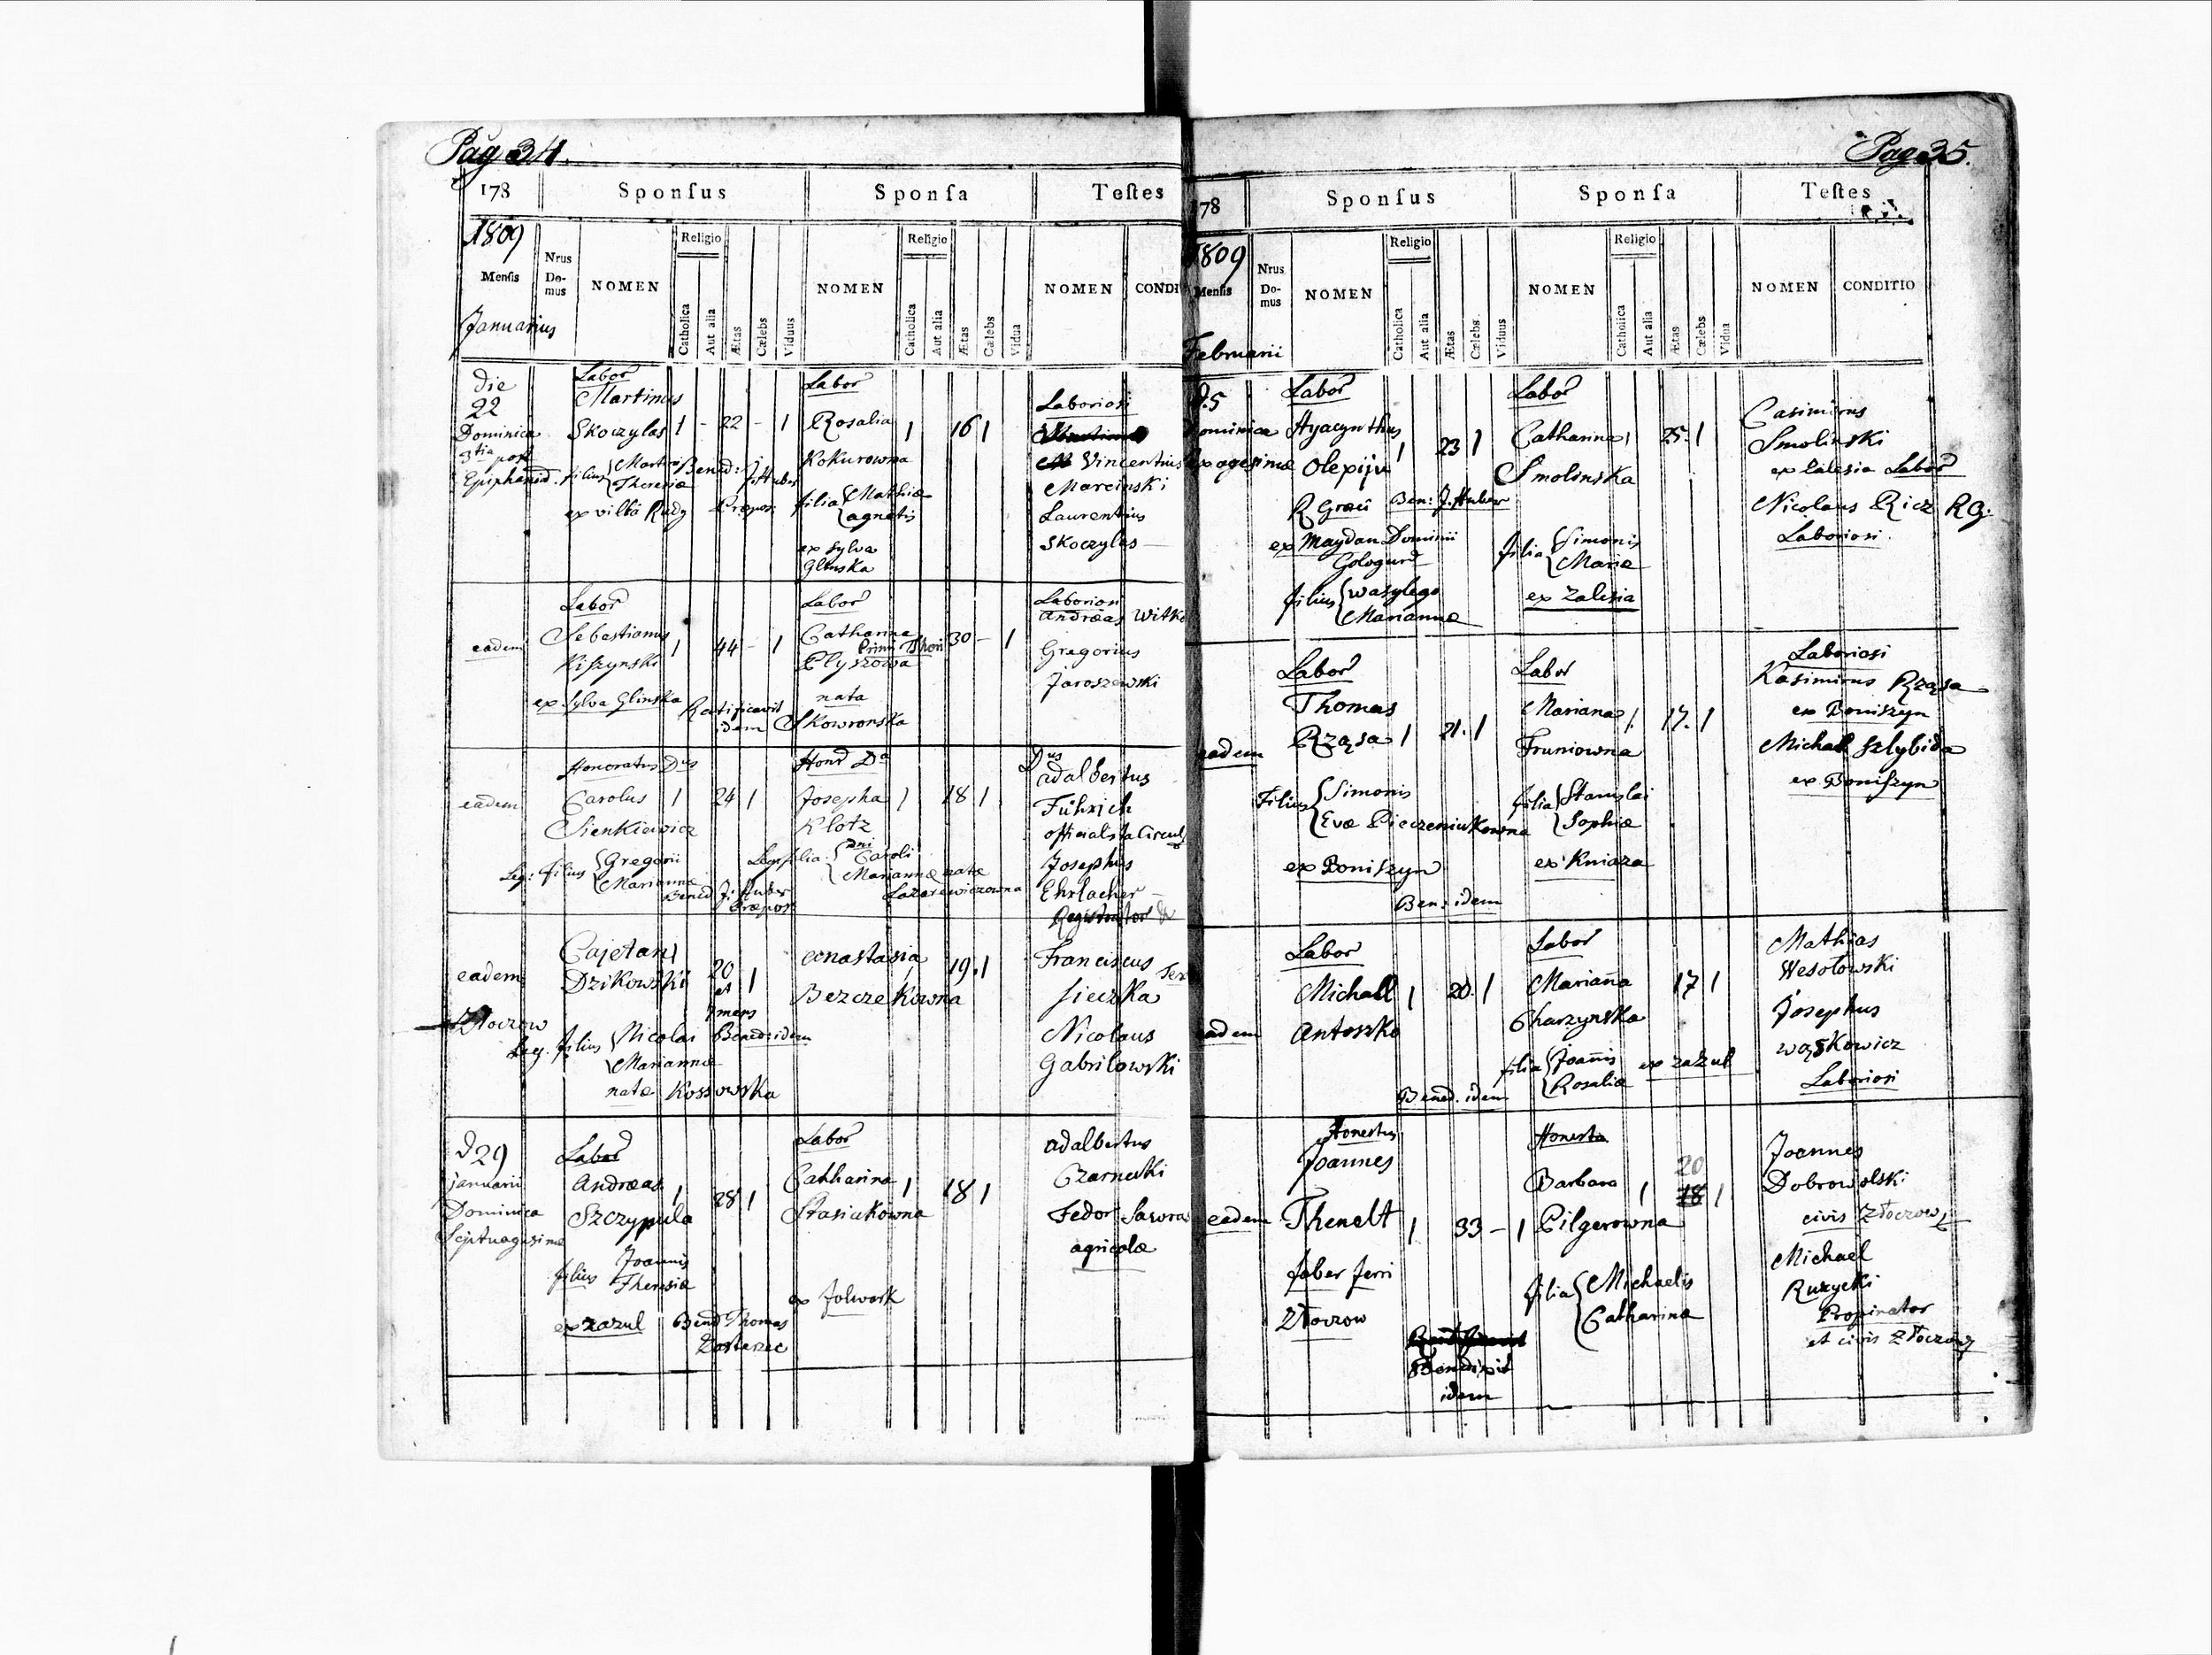 Pag 34.
178
Sponſus
Sponſa
Teſtes
1809
Menſis
Januarius
Nrus Do-mus
NOMEN
Religio
Catholica
Aut alia
Ætas
Cælebs
Viduus
NOMEN
Religio
Catholica
Aut alia
Ætas
Cælebs
Vidua
NOMEN
CONDI
die 22 Dominica 3tia post Epiphaniā
Labor
Martinus
Skoczylas 1 - 22 - 1
filius Martini Theresiæ
Bened: J. Huber
ex villa Rudy Præpos:
Labor
Rosalia 1 16 1
Kokurowna
filia Mathiæ agnetis
ex sylva
Glinska
Laboriosi
Vincentius
Marcinski
Laurentius
Skoczylas
eadem
Labor
Sebastianus
Kiszynski 1 44 - 1
ex Sylva Glinska
Ratificavit
idem
Labor
Catharina 30 - 1
Primi Thori
Plyszowa
nata
Skowronska
Laboriosi
Andræas Witko
Gregorius
Jaroszewski
eadem
Honoratus Dus
Carolus 1 24 1
Sienkiewicz
Leg: filius Gregorii Mariannæ
Bened J: Huber
Præpos:
Hond Da
Josepha 1 18 1
Klotz
Leg: filia Dni Caroli
Mariannæ natæ
Lazarewiczowna
Dus
adalbertus
Führich
officialista Circul
Josephus
Ehrlacher
Registrator
eadem
Złoczow
Cajetan 1
Dzikowski 20 et 1
7 mens
Leg. filius Nicolai Mariannæ
Bened: idem
natæ Kossowska
Anastasia 1 19. 1
Bezczekowna
Franciscus
Sieczka
Nicolaus
Gabrilowski
d 29
januarii
Dominica
Septuagesima
Labor
Andræas 1 28 1
Szczypula
filius Joannis Theresiæ
ex zazul
Bened Thomas
Labor
Catharina 1 18 1
Stasiukowna
ex folwark
adalbertus
Czarnecki
Fedor Sawra
agricolæ
Pag 35.
178
Sponſus
Sponſa
Teſtes
1809
Menſis
Februarii
Nrus Do-mus
NOMEN
Religio
Catholica
Aut alia
Ætas
Cælebs
Viduus
NOMEN
Religio
Catholica
Aut alia
Ætas
Cælebs
Vidua
NOMEN
CONDITIO
d. 5
Dominica
Labor
Hyacynthus
Olepijw 1 23 1
R Græci
Ben: J. Huber
ex Maydan Dominii
Gologurd
filius Wasylego Marianna
Labor
Catharina 1 25. 1
Smolinska
filia Simonis Mariæ
ex Zalesia
Casimirus
Smolinski
ex Zalesia Labor
Nicolaus Ricz R G.
Laboriosi
eadem
Labor
Thomas
Rząsa 1 21. 1
Filius Simonis Evæ Pieczeniukowna
ex Boniszyn
Ben: idem
Labor
Mariana 1 17. 1
Fruniowna
filia Stanislai Sophiæ
ex Kniaza
Laboriosi
Kasimirus Rząsa
ex Boniszyn
Michał Szlybida
ex Boniszyn
eadem
Labor
Michall 1 20. 1
Antoszko
Bened. idem
Labor
Mariana 17 1
Charzynska
filia Joanis Rosaliæ ex zazul
Mathias
Wesołowski
Josephus
Wąskowicz
Laboriosi
eadem
Honestus
Joannes
Thenelt 1 33 - 1
faber ferri
Złoczow
Benedixit
idem
Honesta
Barbara 1 20 18 1
Pilgerowna
filia Michaelis Catharinæ
Joannes
Dobrowolski
civis Złoczow
Michael
Ruzycki
Propinator
et civis Złoczow